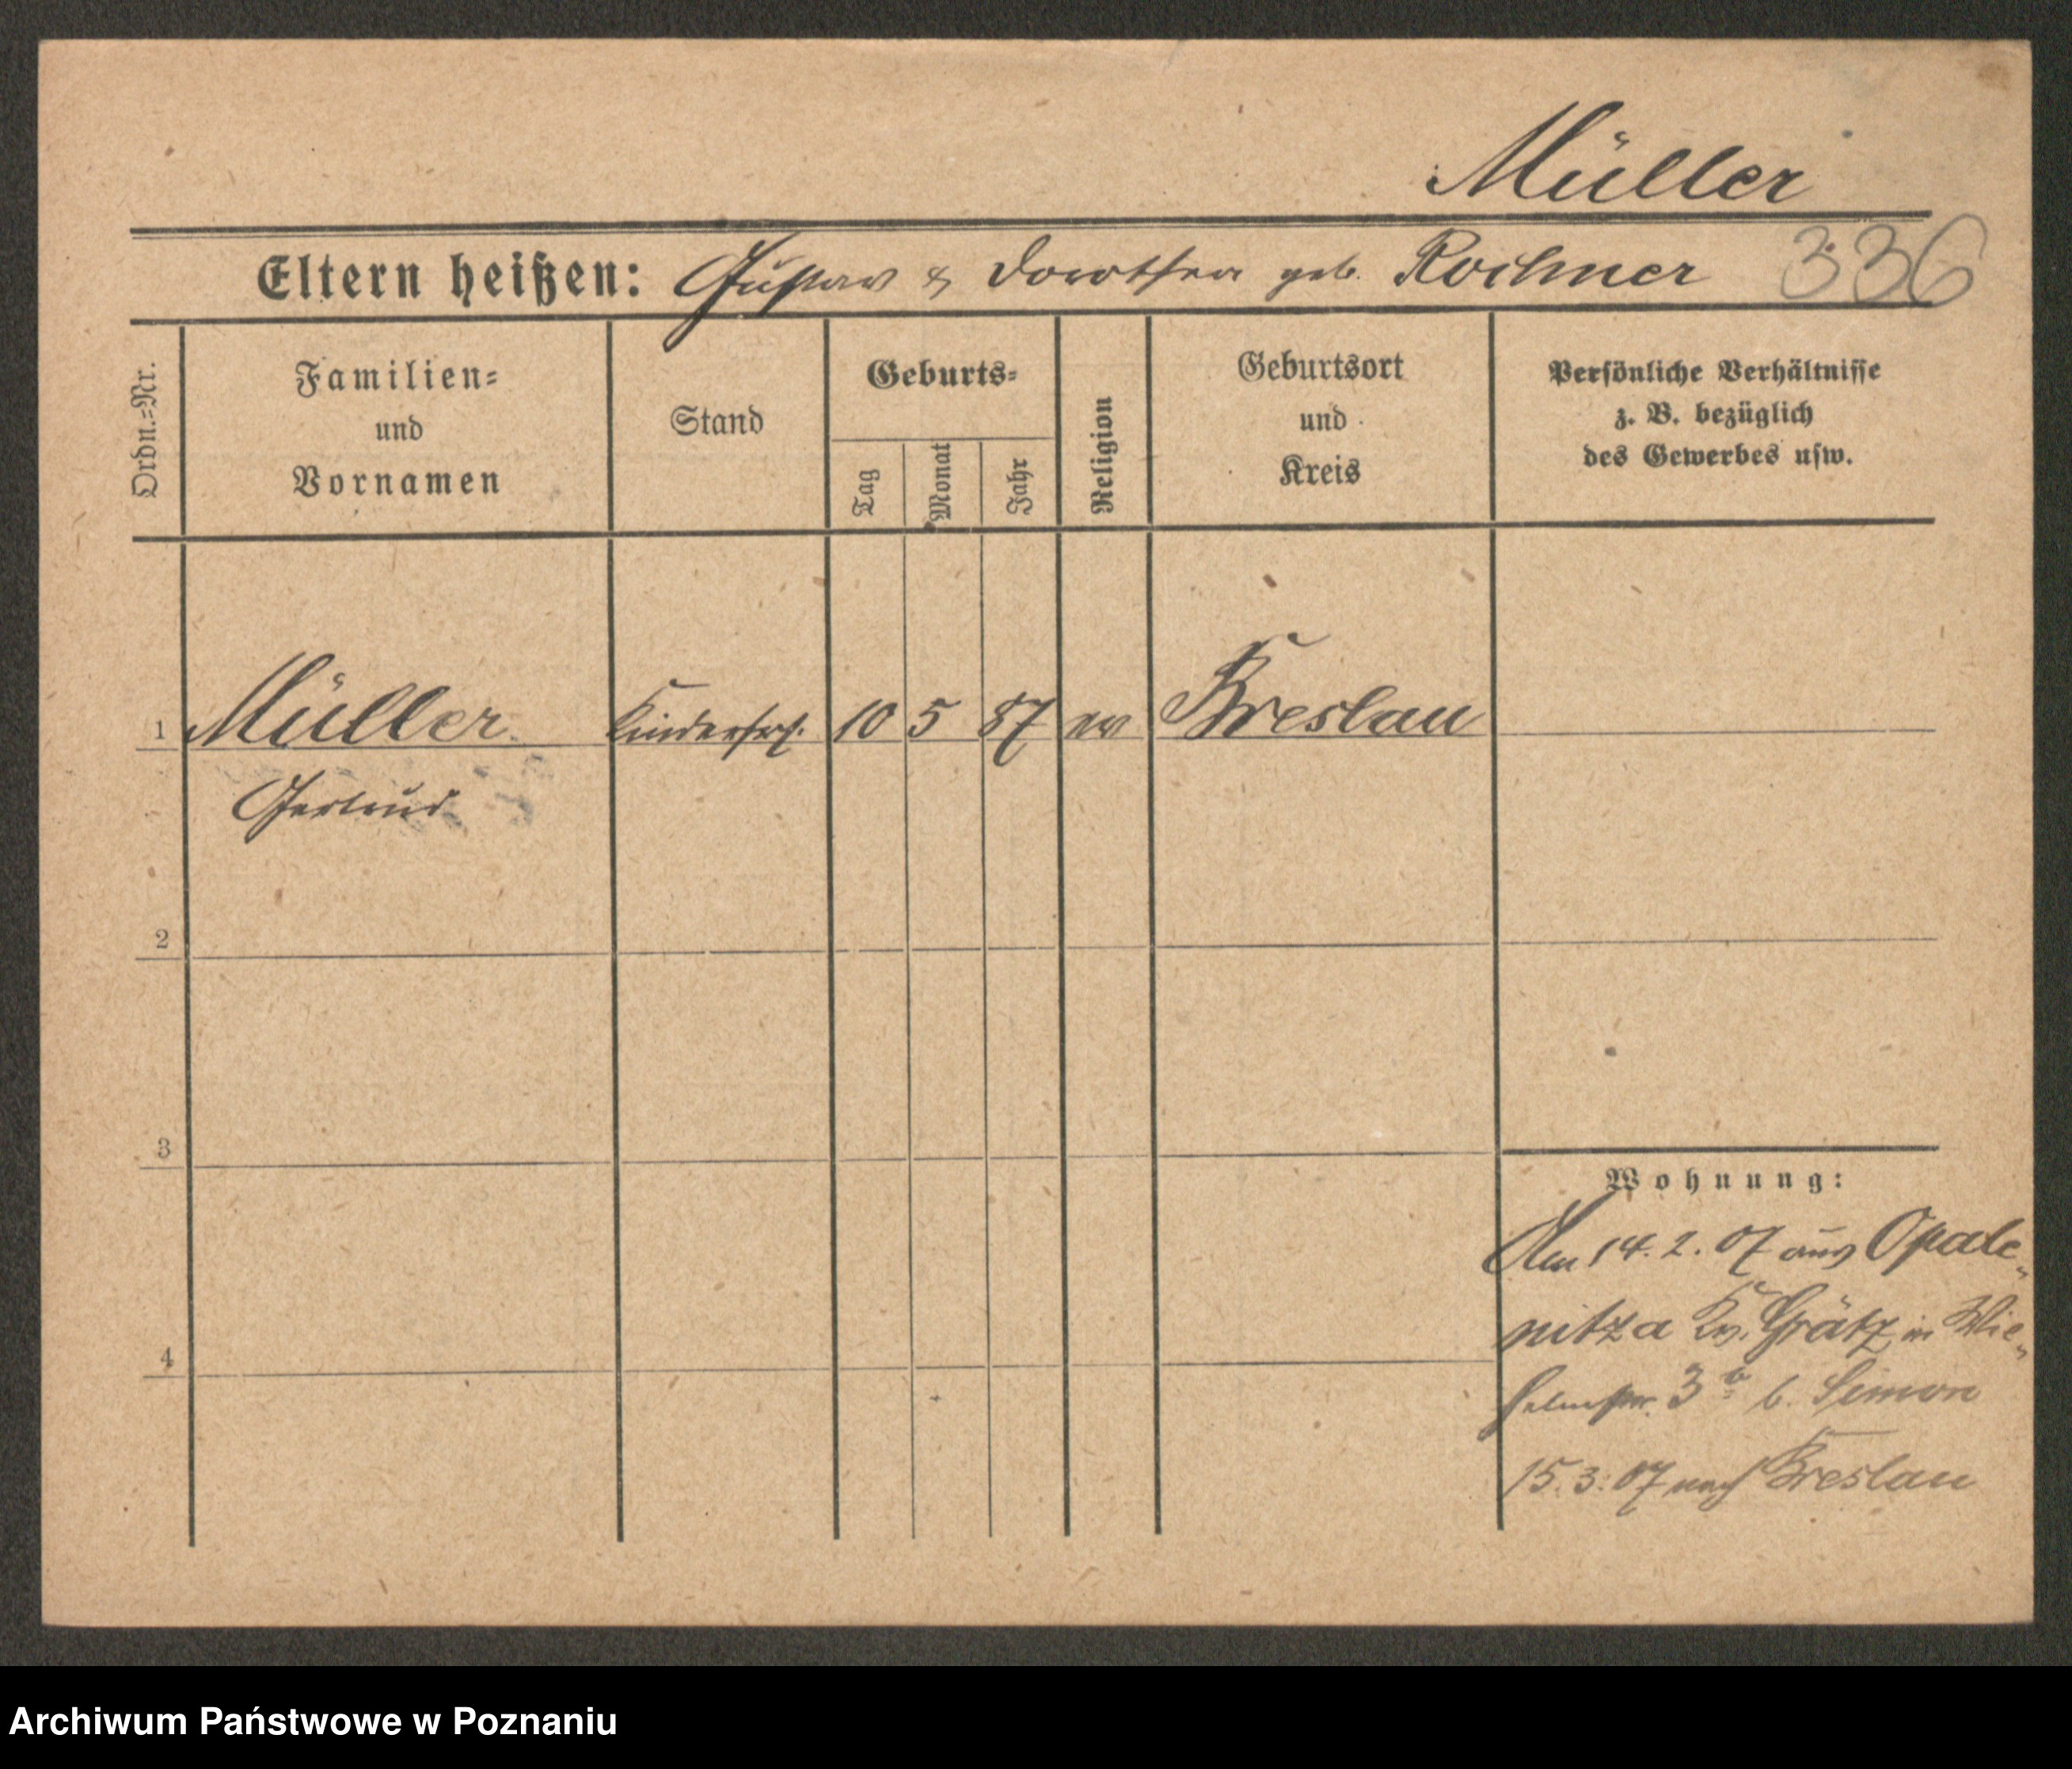 Müller
Eltern heißen: Gustav & Dorothea geb. Rochner 336
Ordn.=Nr.
Familien=
und
Vornamen
Stand
Geburts=
Tag
Monat
Jahr
Religion
Geburtsort
und
Kreis
Persönliche Verhältnisse
z. B. bezüglich
des Gewerbes usw.
1 Müller 10 5 87 ev Breslau
Gertrud
2
3
4
Wohnung:
Am 14. 2. 07 aus Opale„
nitza Kr. Grätz in Wil„
helmstr. 3b b. Simon
15. 3. 07 nach Breslau
Archiwum Państwowe w Poznaniu